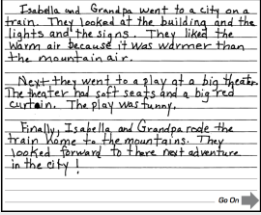 Isabella and Grandpa went to a city on a
train. They looked at the building and the
lights and the signs. They liked the
warm air because it was warmer than
the mountain air.
Next they went to a play at a big theater.
The theater had soft seats and a big red
curtain. The play was funny.
Finally, Isabella and Grandpa rode the
train home to the mountains. They
looked forward to there next adventure
in the city!
Go On